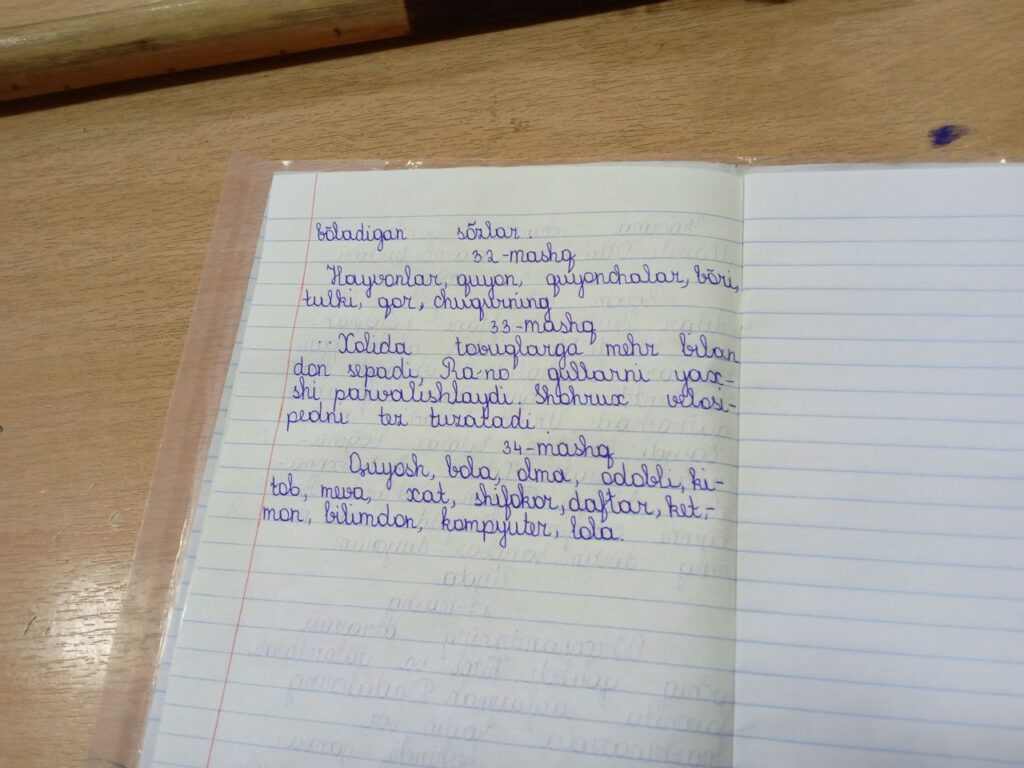 bõladigan sõzlar.
32-mashq
Hayvonlar, quyon, quyonchalar, bõri,
tulki, qor, chuqurning
33-mashq
Xolida tovuqlarga mehr bilan
don sepadi, Ra-no gullarni yax-
shi parvalishlaydi. Shohrux velosi-
pedni tez tuzatadi.
34-mashq
Quyosh, bola, olma, odobli, ki-
tob, meva, xat, shifokor, daftar, ket-
mon, bilimdon, kompyuter, lola.